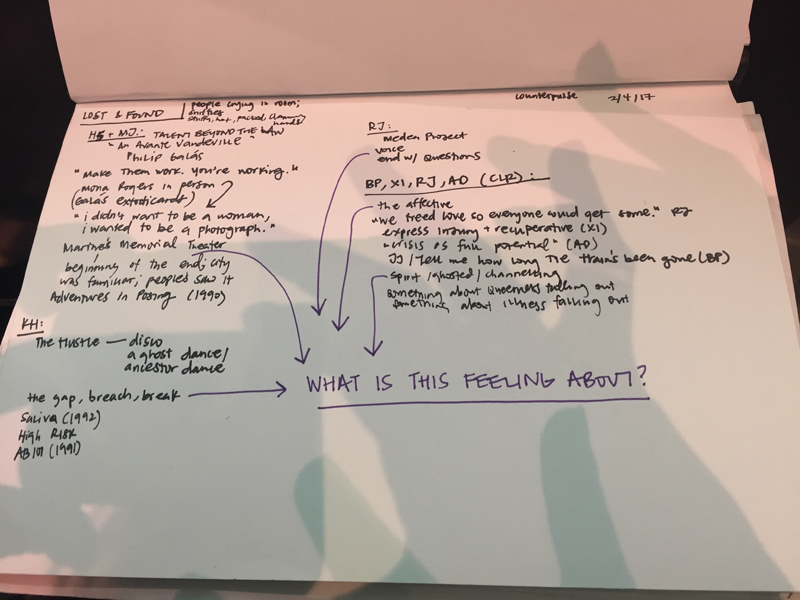 LOST & FOUND
people crying in room;
counterpulse 2/4/17
HS + MJ: TALENT BEYOND THE LAW
"An Avante Vaudeville"
Philip Galás
"Make Them work. You're working."
Mona Rogers in person
(Galás extoticards)
"i didn't want to be a woman,
i wanted to be a photograph."
Marine's Memorial Theater
beginning of the end; city
was familiar; people saw it
Adventures in Posing (1990)
KH:
The Hustle — disco
a ghost dance/
ancestor dance
the gap, breach, break
Saliva (1992)
High Risk
AB101 (1991)
RJ:
Medea Project
voice
end w/ Questions
BP, XI, RJ, AD (CLR):
the affective
"we freed love so everyone could get some." RJ
express + recuperative (XI)
"crisis as full potential" (AD)
JJ / Tell me how long the train's been gone (BP)
spirit / ghosted / channeling
something about Queerness falling out
something about illness falling out
WHAT IS THIS FEELING ABOUT?